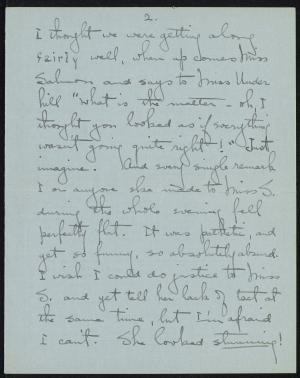 2.
I thought we were getting along
fairly well, when up comes Miss
Salmon and says to Miss Under
hill "What is the matter - oh, I
thought you looked as if everything
wasn't going quite right!" Just
imagine. And every single remark
I or anyone else made to Miss S.
during the whole evening fell
perfectly flat. It was pathetic, and
yet so funny, so absolutely absurd.
I wish I could do justice to Miss
S. and yet tell her lack of tact at
the same time, but I'm afraid
I can't. She looked stunning!